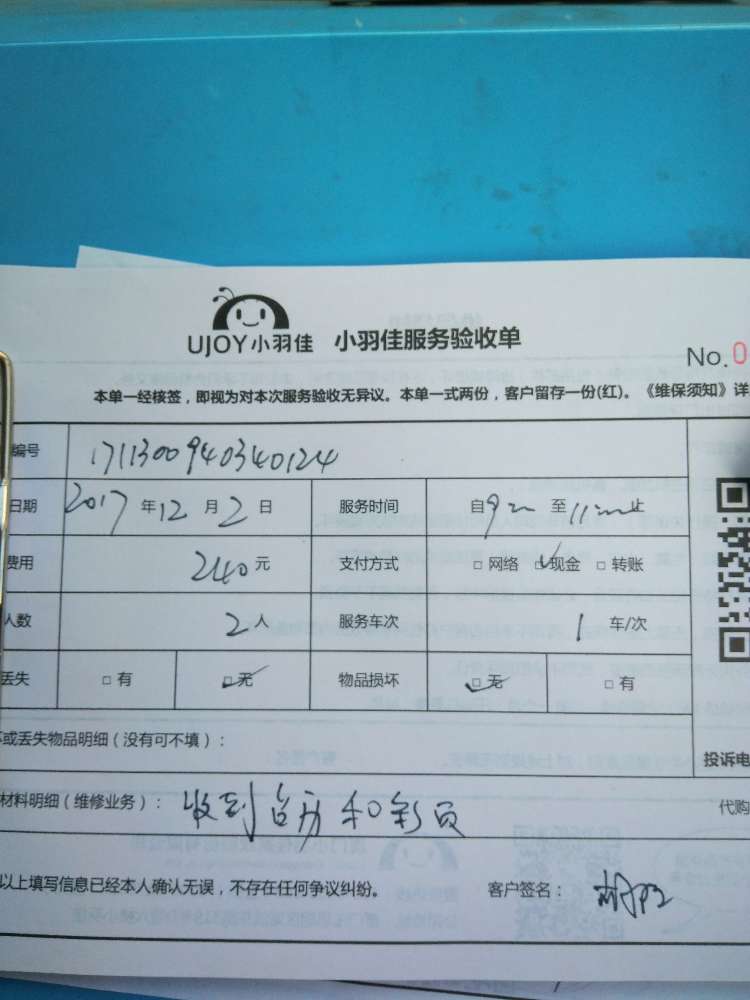 UJOY小羽佳 小羽佳服务验收单
No.0
本单一经核签，即视为对本次服务验收无异议。本单一式两份，客户留存一份(红)。《维保须知》详
编号 1711300940340124
日期 2017年12月2日 服务时间 自9 至11 止
费用 240元 支付方式 □网络 □现金 □转账
人数 2人 服务车次 1 车/次
丢失 □有 □无 物品损坏 □无 □有
或丢失物品明细（没有可不填）：
投诉电
材料明细（维修业务）： 收到台历和彩页
代购
以上填写信息已经本人确认无误，不存在任何争议纠纷。 客户签名：